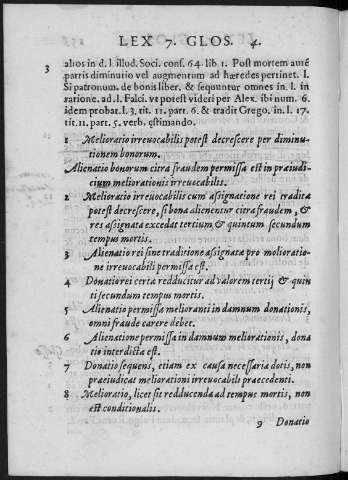 LEX 7. GLOS. 4.
alios in d. l. illud. Soci. conf. 64. lib 1. Post mortem autē
3 patris diminutio vel augmentum ad hæredes pertinet. l.
Si patronum. de bonis liber. & sequuntur omnes in l. in
ratione. ad. l. Falci. vt potest videri per Alex. ibi num. 6.
idem probat. l. 3. tit. 11. part. 6. & tradit Grego. in l. 17.
tit. 11. part. 5. verb. estimando.
1 Melioratio irreuocabilis potest decrescere per diminu-
tionem bonorum.
Alienatio bonorum citra fraudem permissa est in præiudi-
cium meliorationis irreuocabilis.
2 Melioratio irreuocabilis cum assignatione rei tradita
potest decrescere, si bona alienentur citra fraudem, &
res assignata excedat tertium & quintum secundum
tempus mortis.
3 Alienatio rei sine traditione assignatæ pro melioratio-
ne irreuocabili permissa est.
4 Donatio rei certa redducitur ad valorem tertij & quin
ti secundum tempus mortis.
5 Alienatio permissa melioranti in damnum donationis,
omni fraude carere debet.
6 Alienatione permissa in damnum meliorationis, dona
tio interdicta est.
7 Donatio sequens, etiam ex causa necessaria dotis, non
præiudicat meliorationi irreuocabili præcedenti.
8 Melioratio, licet sit redducenda ad tempus mortis, non
est conditionalis.
9 Donatio